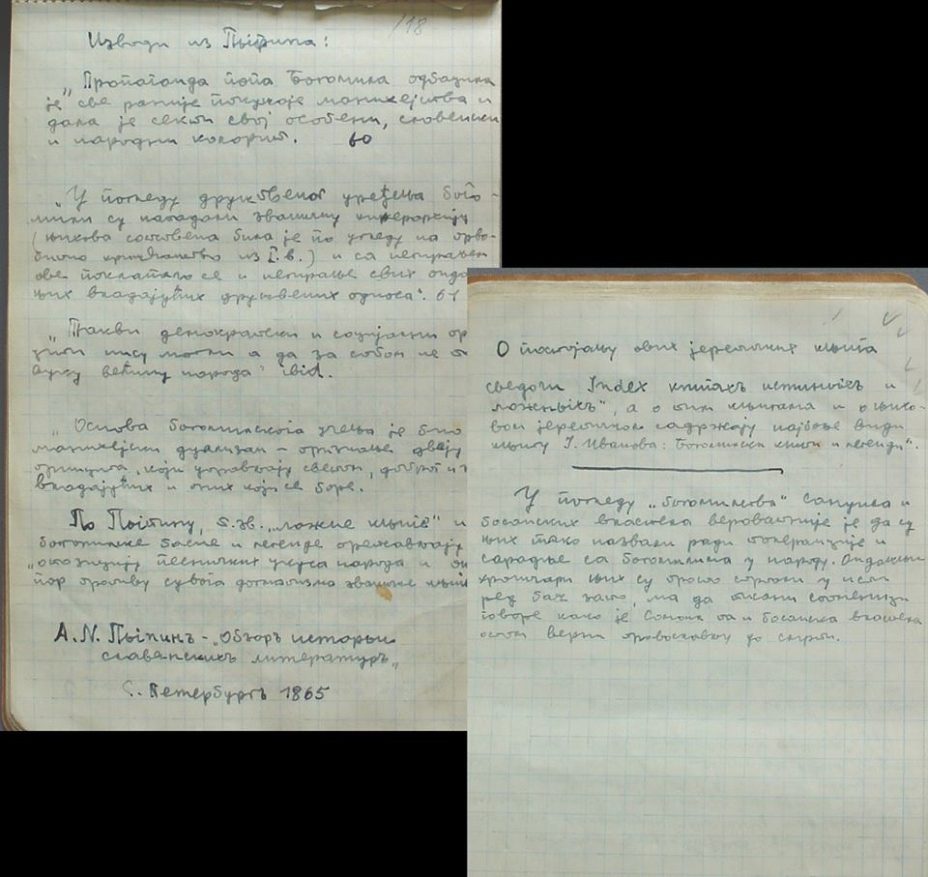 118
Изводи из Пыпина:
„Пропаганда попа Богомила одбацила
је све раније покушаје манихејства и
дала је секти свој особени, словенски
и народни колорит. 60
„У погледу друштвеног уређења бого-
мили су нападали званичну хијерархију
(њихова сопствена била је по угледу на прво-
битно хришћанство из I в.) и са
ове поклапало се и негирање свих онда
њих владајућих друштвених односа". 61
„Такви демократски и социјални
нису могли а да за собом не
вуку већину народа" ibid.
„Основа богомилскога учења је био
манихејски дуализам –
принципа, који управљају светом, доброг и
владајућих и оних који се боре.
По Пыпину, т. зв. „ложне књиге" и
богомилске басне и легенде представљају
„опозицију песничког укуса народа и
пор против сувога догматизма званичне
А. N. Пыпинъ – „Обзоръ исторьи
славянскихъ литературъ„
С. Петербургъ 1865
О постојању ових јеретичких књига
сведочи Index книгахъ истинныхъ и
ложныхъ", а о тим књигама и о њихо-
вом јеретичком садржају најбоље види
књигу Ј. Иванова: Богомилски книги и легенди".
У погледу „богомилства" Санџила и
босанских властела вероватније је да су
њих тако назвали ради толеранције и
сарадње са богомилима у народу. Ондашњи
хроничари њих су просто стрпали у исти
ред баш зато, ма да писани споменици
говоре како је и босанска властела
остала верна православљу до смрти.